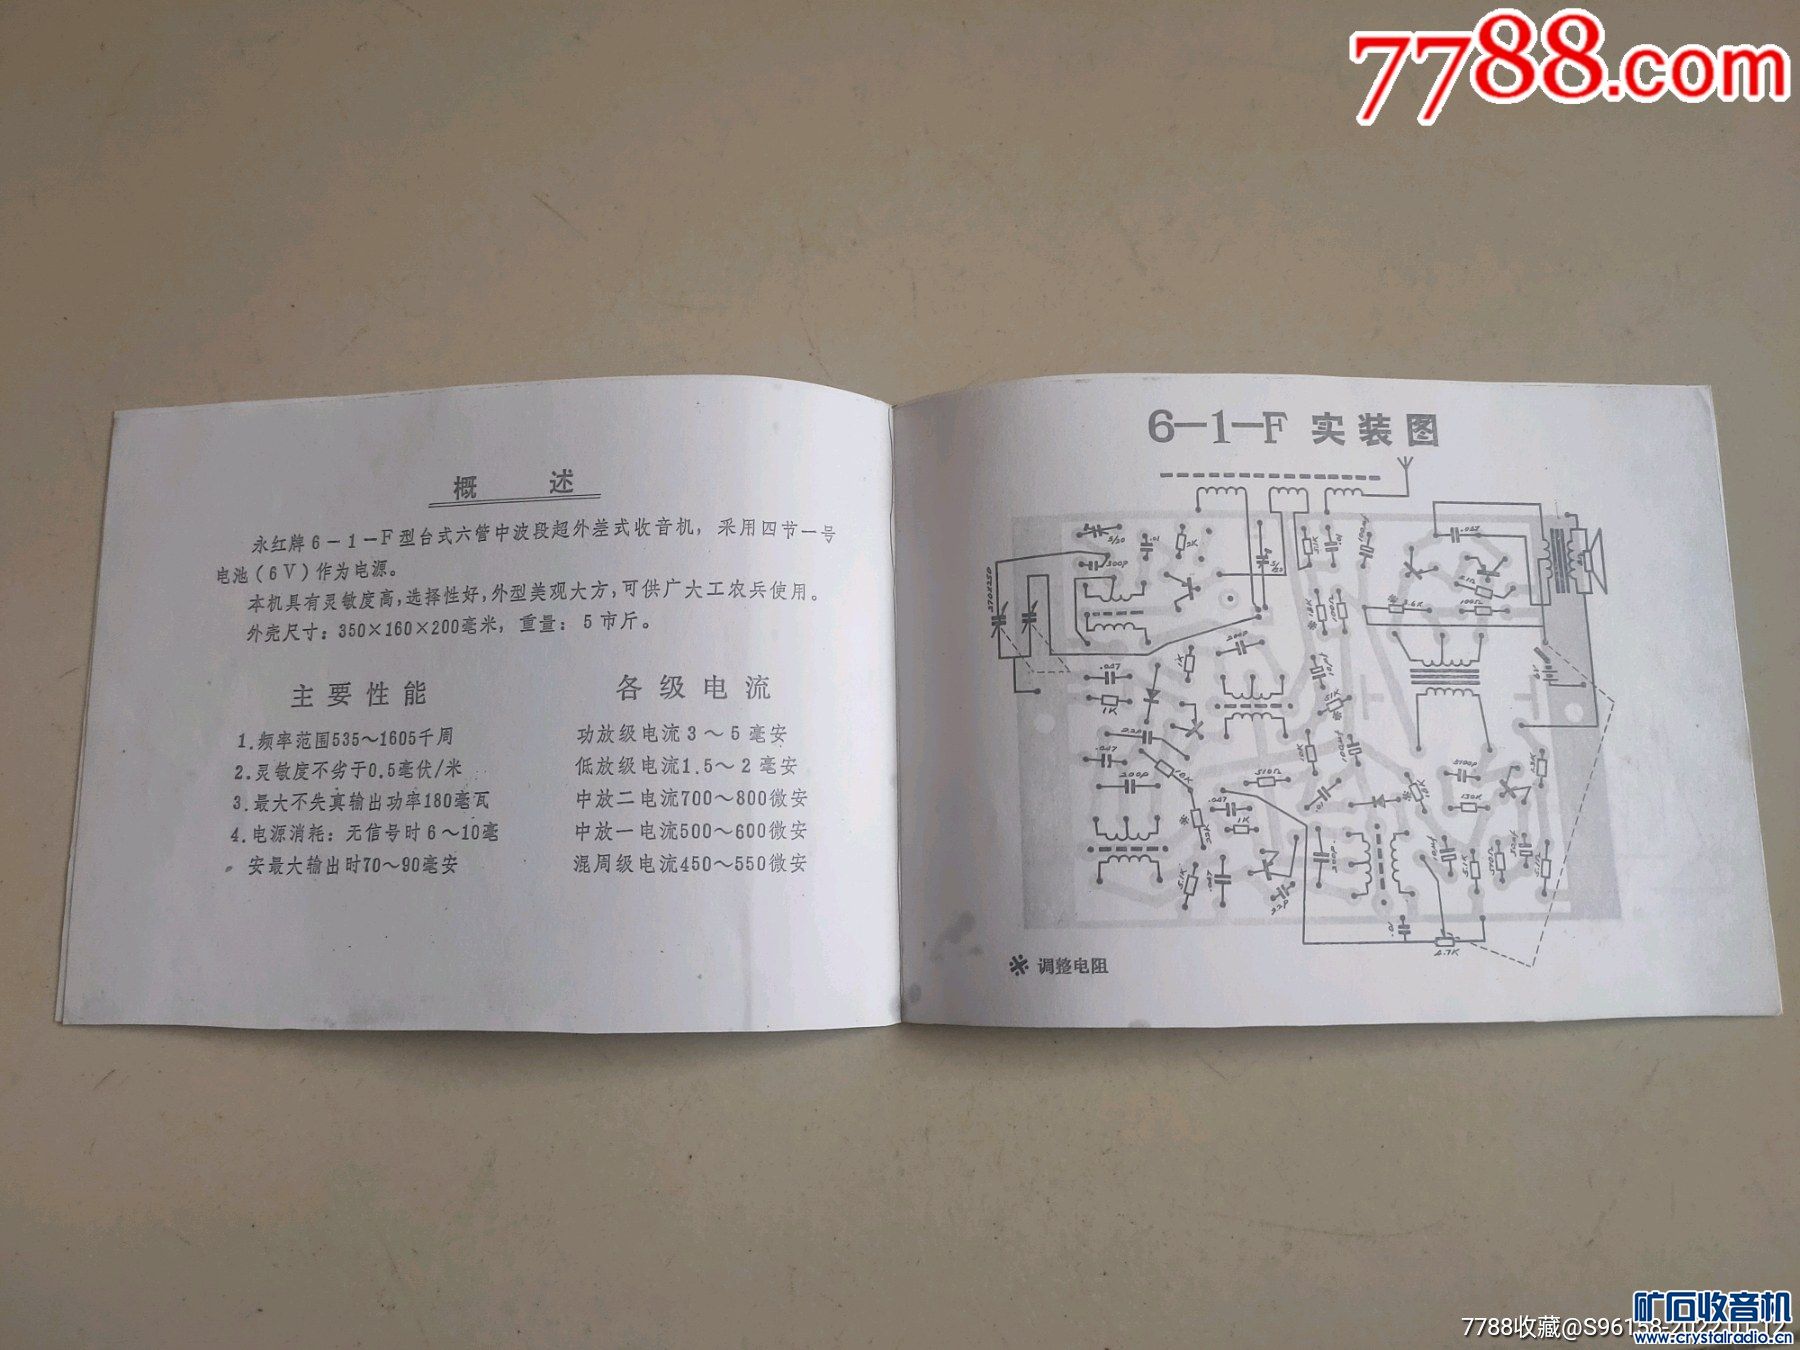 7788.com
概 述
永红牌6-1-F型台式六管中波段超外差式收音机，采用四节一号
电池(6V)作为电源。
本机具有灵敏度高，选择性好，外型美观大方，可供广大工农兵使用。
外壳尺寸：350×160×200毫米，重量：5市斤。
主要性能
1.频率范围535~1605千周
2.灵敏度不劣于0.5毫伏/米
3.最大不失真输出功率180毫瓦
4.电源消耗：无信号时6~10毫
安最大输出时70~90毫安
各级电流
功放级电流3~5毫安
低放级电流1.5~2毫安
中放二电流700~800微安
中放一电流500~600微安
混周级电流450~550微安
6-1-F 实装图
5/20
.01
2K
300P
5/20
51K
.01
.047
270X250
200P
1K
.047
1K
100Ω
10μf
51K
.047
200P
10K
510Ω
100μf
.047
1K
5100P
130K
5.1K
.047
22P
200P
10μf
5.1K
.01
4.7K
※ 调整电阻
矿石收音机
www.crystalradio.cn
7788收藏@S96158-2022.01.12